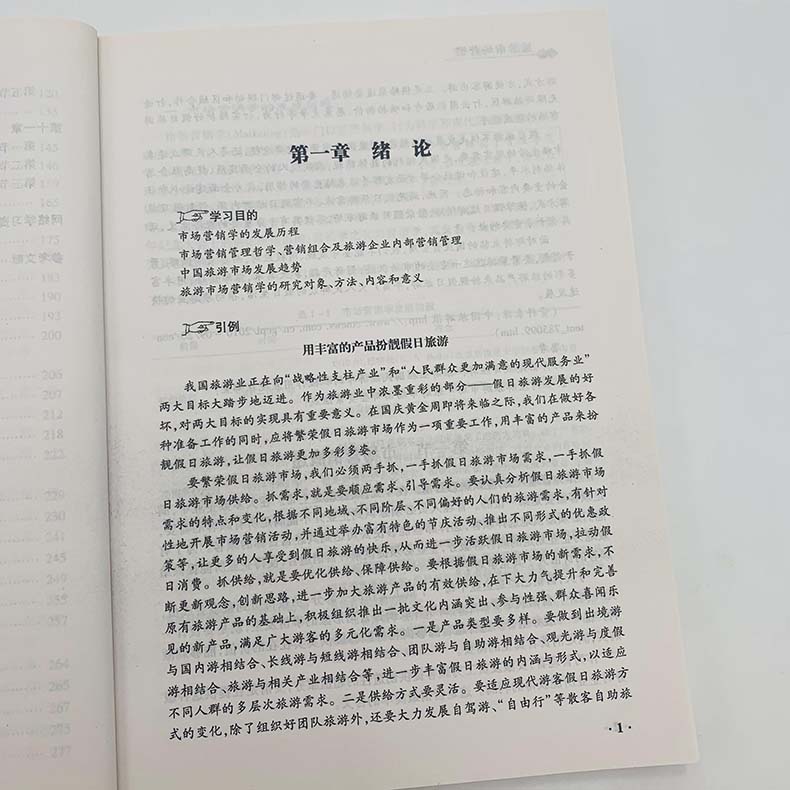 第一章 绪 论
学习目的
市场营销学的发展历程
市场营销管理哲学、营销组合及旅游企业内部营销管理
中国旅游市场发展趋势
旅游市场营销学的研究对象、方法、内容和意义
引例
用丰富的产品扮靓假日旅游
我国旅游业正在向“战略性支柱产业”和“人民群众更加满意的现代服务业”
两大目标大踏步地迈进。作为旅游业中浓墨重彩的部分——假日旅游发展的好
坏，对两大目标的实现具有重要意义。在国庆黄金周即将来临之际，我们在做好各
种准备工作的同时，应将繁荣假日旅游市场作为一项重要工作，用丰富的产品来扮
靓假日旅游，让假日旅游更加多彩多姿。
要繁荣假日旅游市场，我们必须两手抓，一手抓假日旅游市场需求，一手抓假
日旅游市场供给。抓需求，就是要顺应需求、引导需求。要认真分析假日旅游市场
需求的特点和变化，根据不同地域、不同阶层、不同偏好的人们的旅游需求，有针对
性地开展市场营销活动，并通过举办富有特色的节庆活动、推出不同形式的优惠政
策等，让更多的人享受到假日旅游的快乐，从而进一步活跃假日旅游市场，拉动假
日消费。抓供给，就是要优化供给、保障供给。要根据假日旅游市场的新需求，不
断更新观念，创新思路，进一步加大旅游产品的有效供给，在下大力气提升和完善
原有旅游产品的基础上，积极组织推出一批文化内涵突出、参与性强、群众喜闻乐
见的新产品，满足广大游客的多元化需求。一是产品类型要多样。要做到出境游
与国内游相结合、长线游与短线游相结合、团队游与自助游相结合、观光游与度假
游相结合、旅游与相关产业相结合等，进一步丰富假日旅游的内涵与形式，以适应
不同人群的多层次旅游需求。二是供给方式要灵活。要适应现代游客假日旅游方
式的变化，除了组织好团队旅游外，还要大力发展自驾游、“自由行”等散客自助旅
·1·